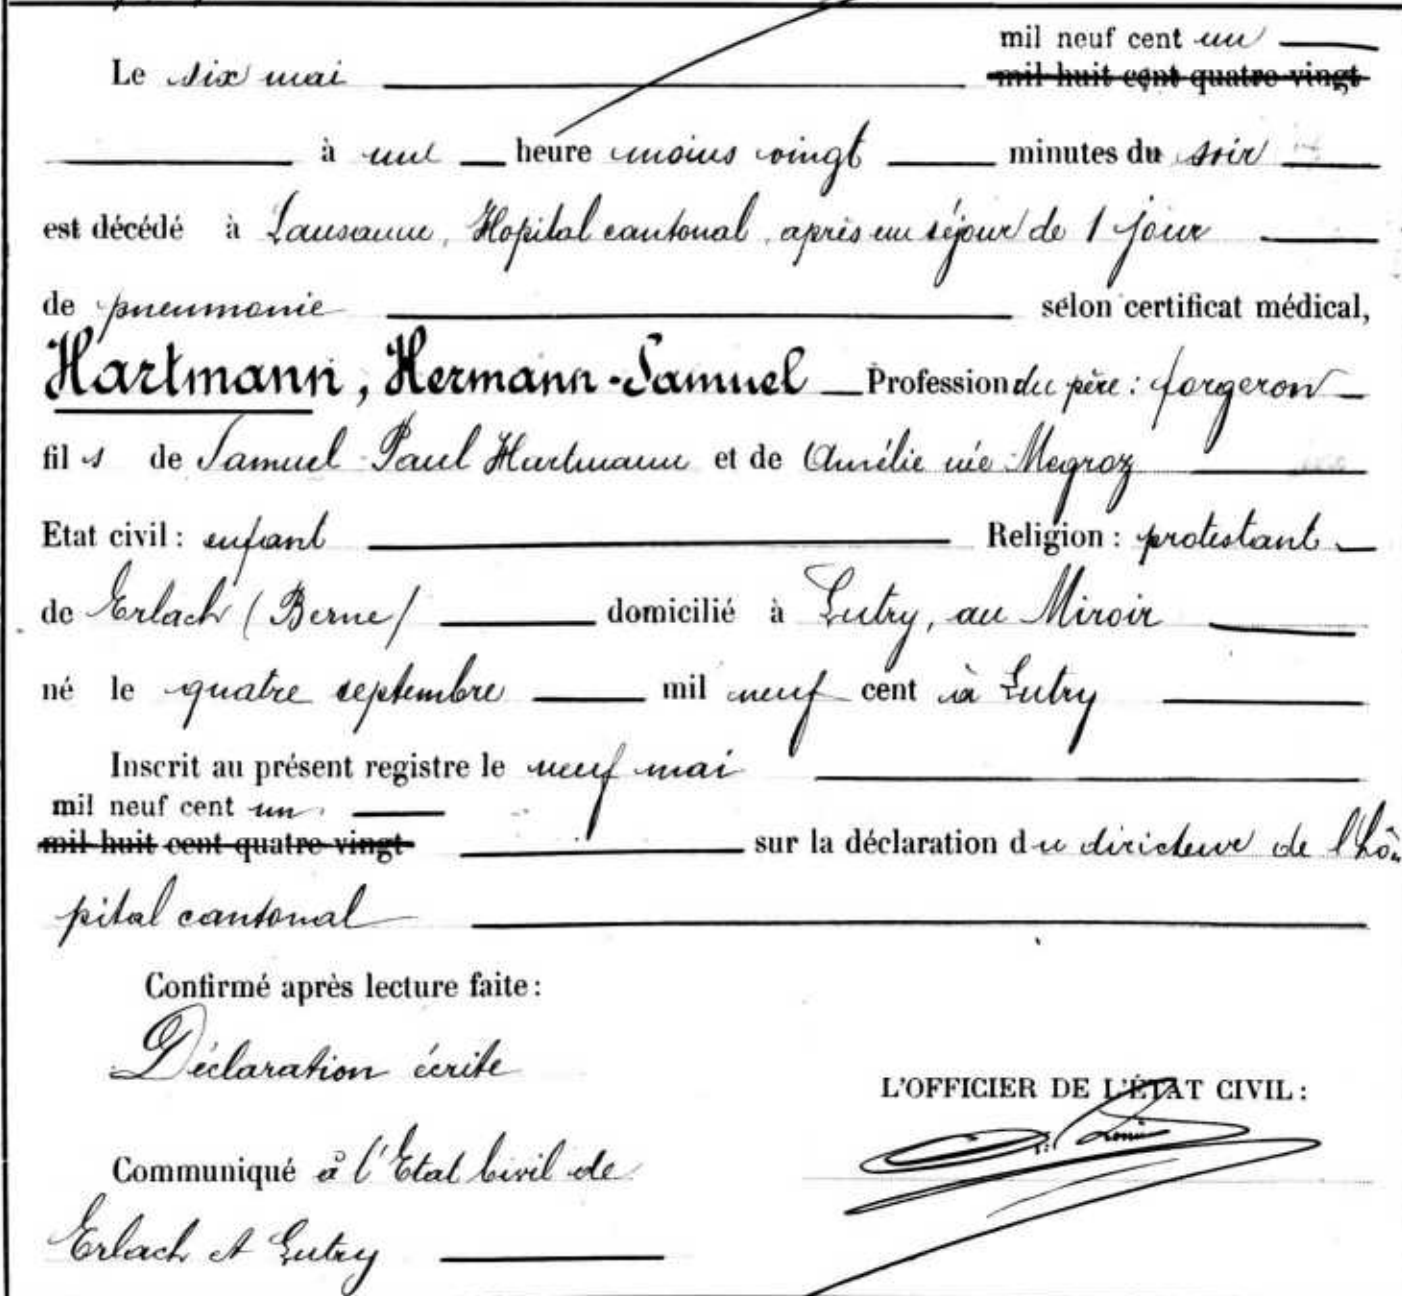 mil neuf cent un
Le six mai mil huit cent quatre-vingt
à une heure moins vingt minutes du soir
est décédé à Lausanne, Hopital cantonal, après un séjour de 1 jour
de pneumonie selon certificat médical,
Hartmann, Hermann-Samuel Profession du père : forgeron
fils de Samuel-Paul Hartmann et de Amélie née Megroz
Etat civil : enfant Religion : protestant
de Erlach (Berne) domicilié à Lutry, au Miroir
né le quatre septembre mil neuf cent à Lutry
Inscrit au présent registre le neuf mai
mil neuf cent un
mil huit cent quatre-vingt sur la déclaration du directeur de l'hô-
pital cantonal
Confirmé après lecture faite :
Déclaration écrite
L'OFFICIER DE L'ÉTAT CIVIL :
Communiqué à l'Etat Civil de
Erlach et Lutry